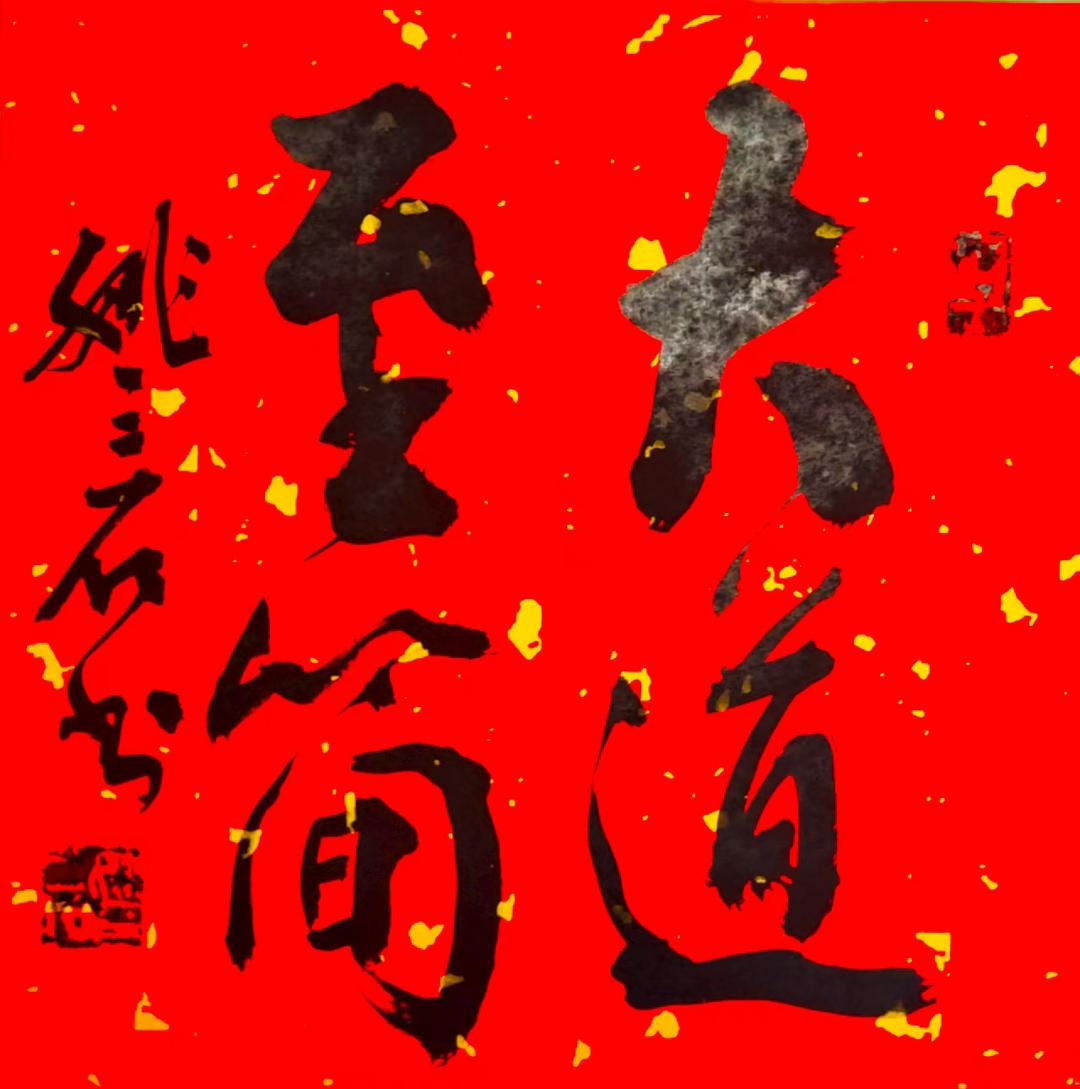 大道
至简
姚三石书